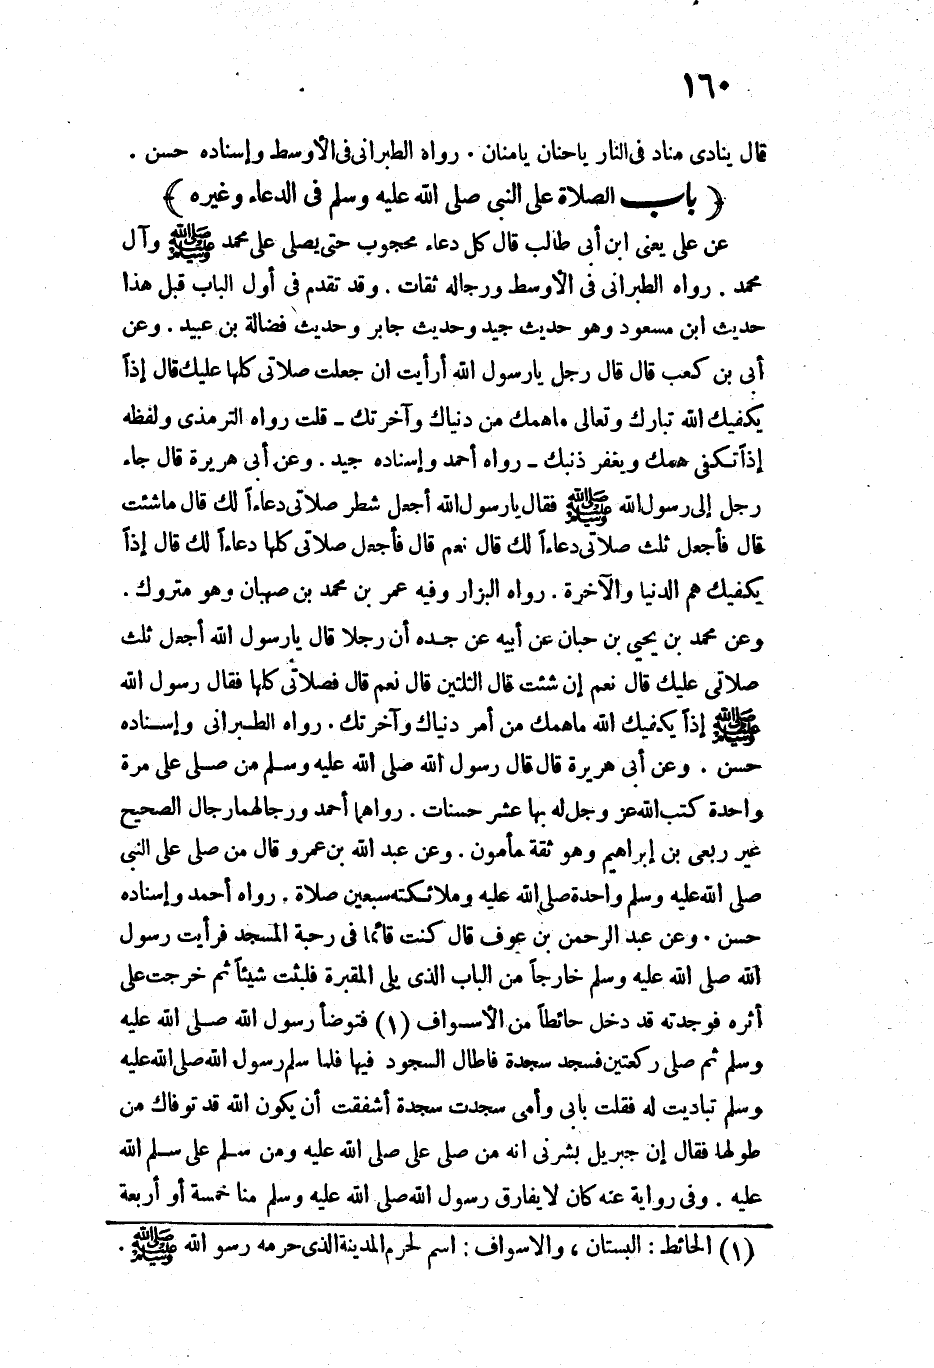 ١٦٠
قال ينادى مناد فى النار ياحنان يامنان . رواه الطبرانى فى الأوسط وإسناده حسن .
﴿ باب الصلاة على النبى صلى الله عليه وسلم فى الدعاء وغيره ﴾
عن على يعنى ابن أبى طالب قال كل دعاء محجوب حتى يصلى على محمد ﷺ وآل
محمد . رواه الطبرانى فى الأوسط ورجاله ثقات . وقد تقدم فى أول الباب قبل هذا
حديث ابن مسعود وهو حديث جيد وحديث جابر وحديث فضالة بن عبيد . وعن
أبى بن كعب قال قال رجل يارسول الله أرأيت ان جعلت صلاتى كلها عليك قال إذاً
يكفيك الله تبارك وتعالى ماهمك من دنياك وآخرتك ـ قلت رواه الترمذى ولفظه
إذاً تكفى همك ويغفر ذنبك ـ رواه أحمد وإسناده جيد . وعن أبى هريرة قال جاء
رجل إلى رسول الله ﷺ فقال يارسول الله أجعل شطر صلاتى دعاءاً لك قال ماشئت
قال فأجعل ثلث صلاتى دعاءاً لك قال نعم قال فأجعل صلاتى كلها دعاءاً لك قال إذاً
يكفيك هم الدنيا والآخرة . رواه البزار وفيه عمر بن محمد بن صهبان وهو متروك .
وعن محمد بن يحيى بن حبان عن أبيه عن جده أن رجلا قال يارسول الله أجعل ثلث
صلاتى عليك قال نعم إن شئت قال الثلثين قال نعم قال فصلاتى كلها فقال رسول الله
ﷺ إذاً يكفيك الله ماهمك من أمر دنياك وآخرتك . رواه الطبرانى وإسناده
حسن . وعن أبى هريرة قال قال رسول الله صلى الله عليه وسلم من صلى على مرة
واحدة كتب الله عز وجل له بها عشر حسنات . رواهما أحمد ورجالهما رجال الصحيح
غير ربعى بن إبراهيم وهو ثقة مأمون . وعن عبد الله بن عمرو قال من صلى على النبى
صلى الله عليه وسلم واحدة صلى الله عليه وملائكته سبعين صلاة . رواه أحمد وإسناده
حسن . وعن عبد الرحمن بن عوف قال كنت قائما فى رحبة المسجد فرأيت رسول
الله صلى الله عليه وسلم خارجاً من الباب الذى يلى المقبرة فلبثت شيئاً ثم خرجت على
أثره فوجدته قد دخل حائطاً من الأسواف (١) فتوضأ رسول الله صلى الله عليه
وسلم ثم صلى ركعتين فسجد سجدة فاطال السجود فيها فلما سلم رسول الله صلى الله عليه
وسلم تباديت له فقلت بأبى وأمى سجدت سجدة أشفقت أن يكون الله قد توفاك من
طولها فقال إن جبريل بشرنى انه من صلى على صلى الله عليه ومن سلم على سلم الله
عليه . وفى رواية عنه كان لا يفارق رسول الله صلى الله عليه وسلم منا خمسة أو أربعة
(١) الحائط : البستان ، والاسواف : اسم لحرم المدينة الذى حرمه رسو الله ﷺ .